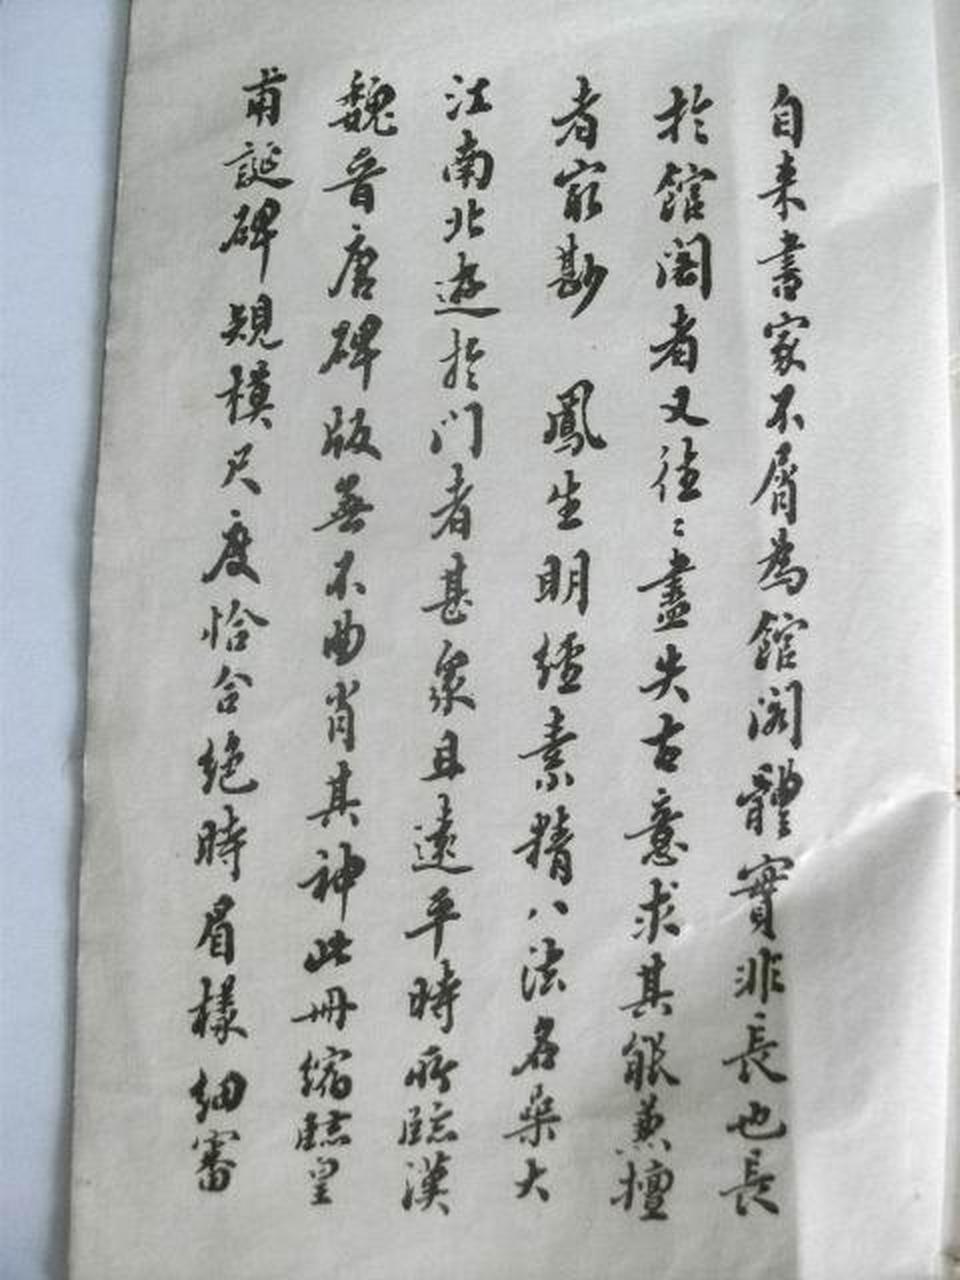 自来書家不屑為館阁體實非長也長
於館阁者又往〻盡失古意求其能兼擅
者寂尠　鳳生明經素精八法名柒大
江南北遊於门者甚衆且遠平時所臨漢
魏晉唐碑版無不曲肖其神此冊缩臨皇
甫誕碑規模尺度恰合绝時眉樣细審